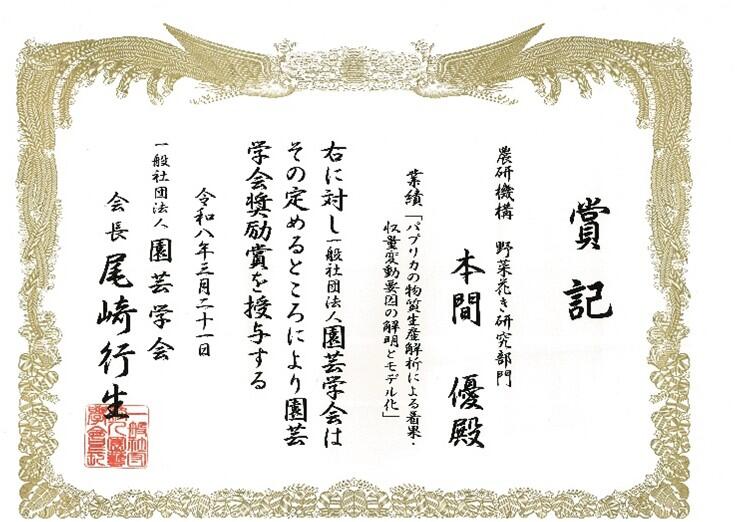 賞記
農研機構 野菜花き研究部門
本間 優殿
業績「パプリカの物質生産解析による着果・
収量変動要因の解明とモデル化」
右に対し一般社団法人園芸学会は
その定めるところにより園芸
学会奨励賞を授与する
令和八年三月二十一日
一般社団法人 園芸学会
会長 尾崎行生